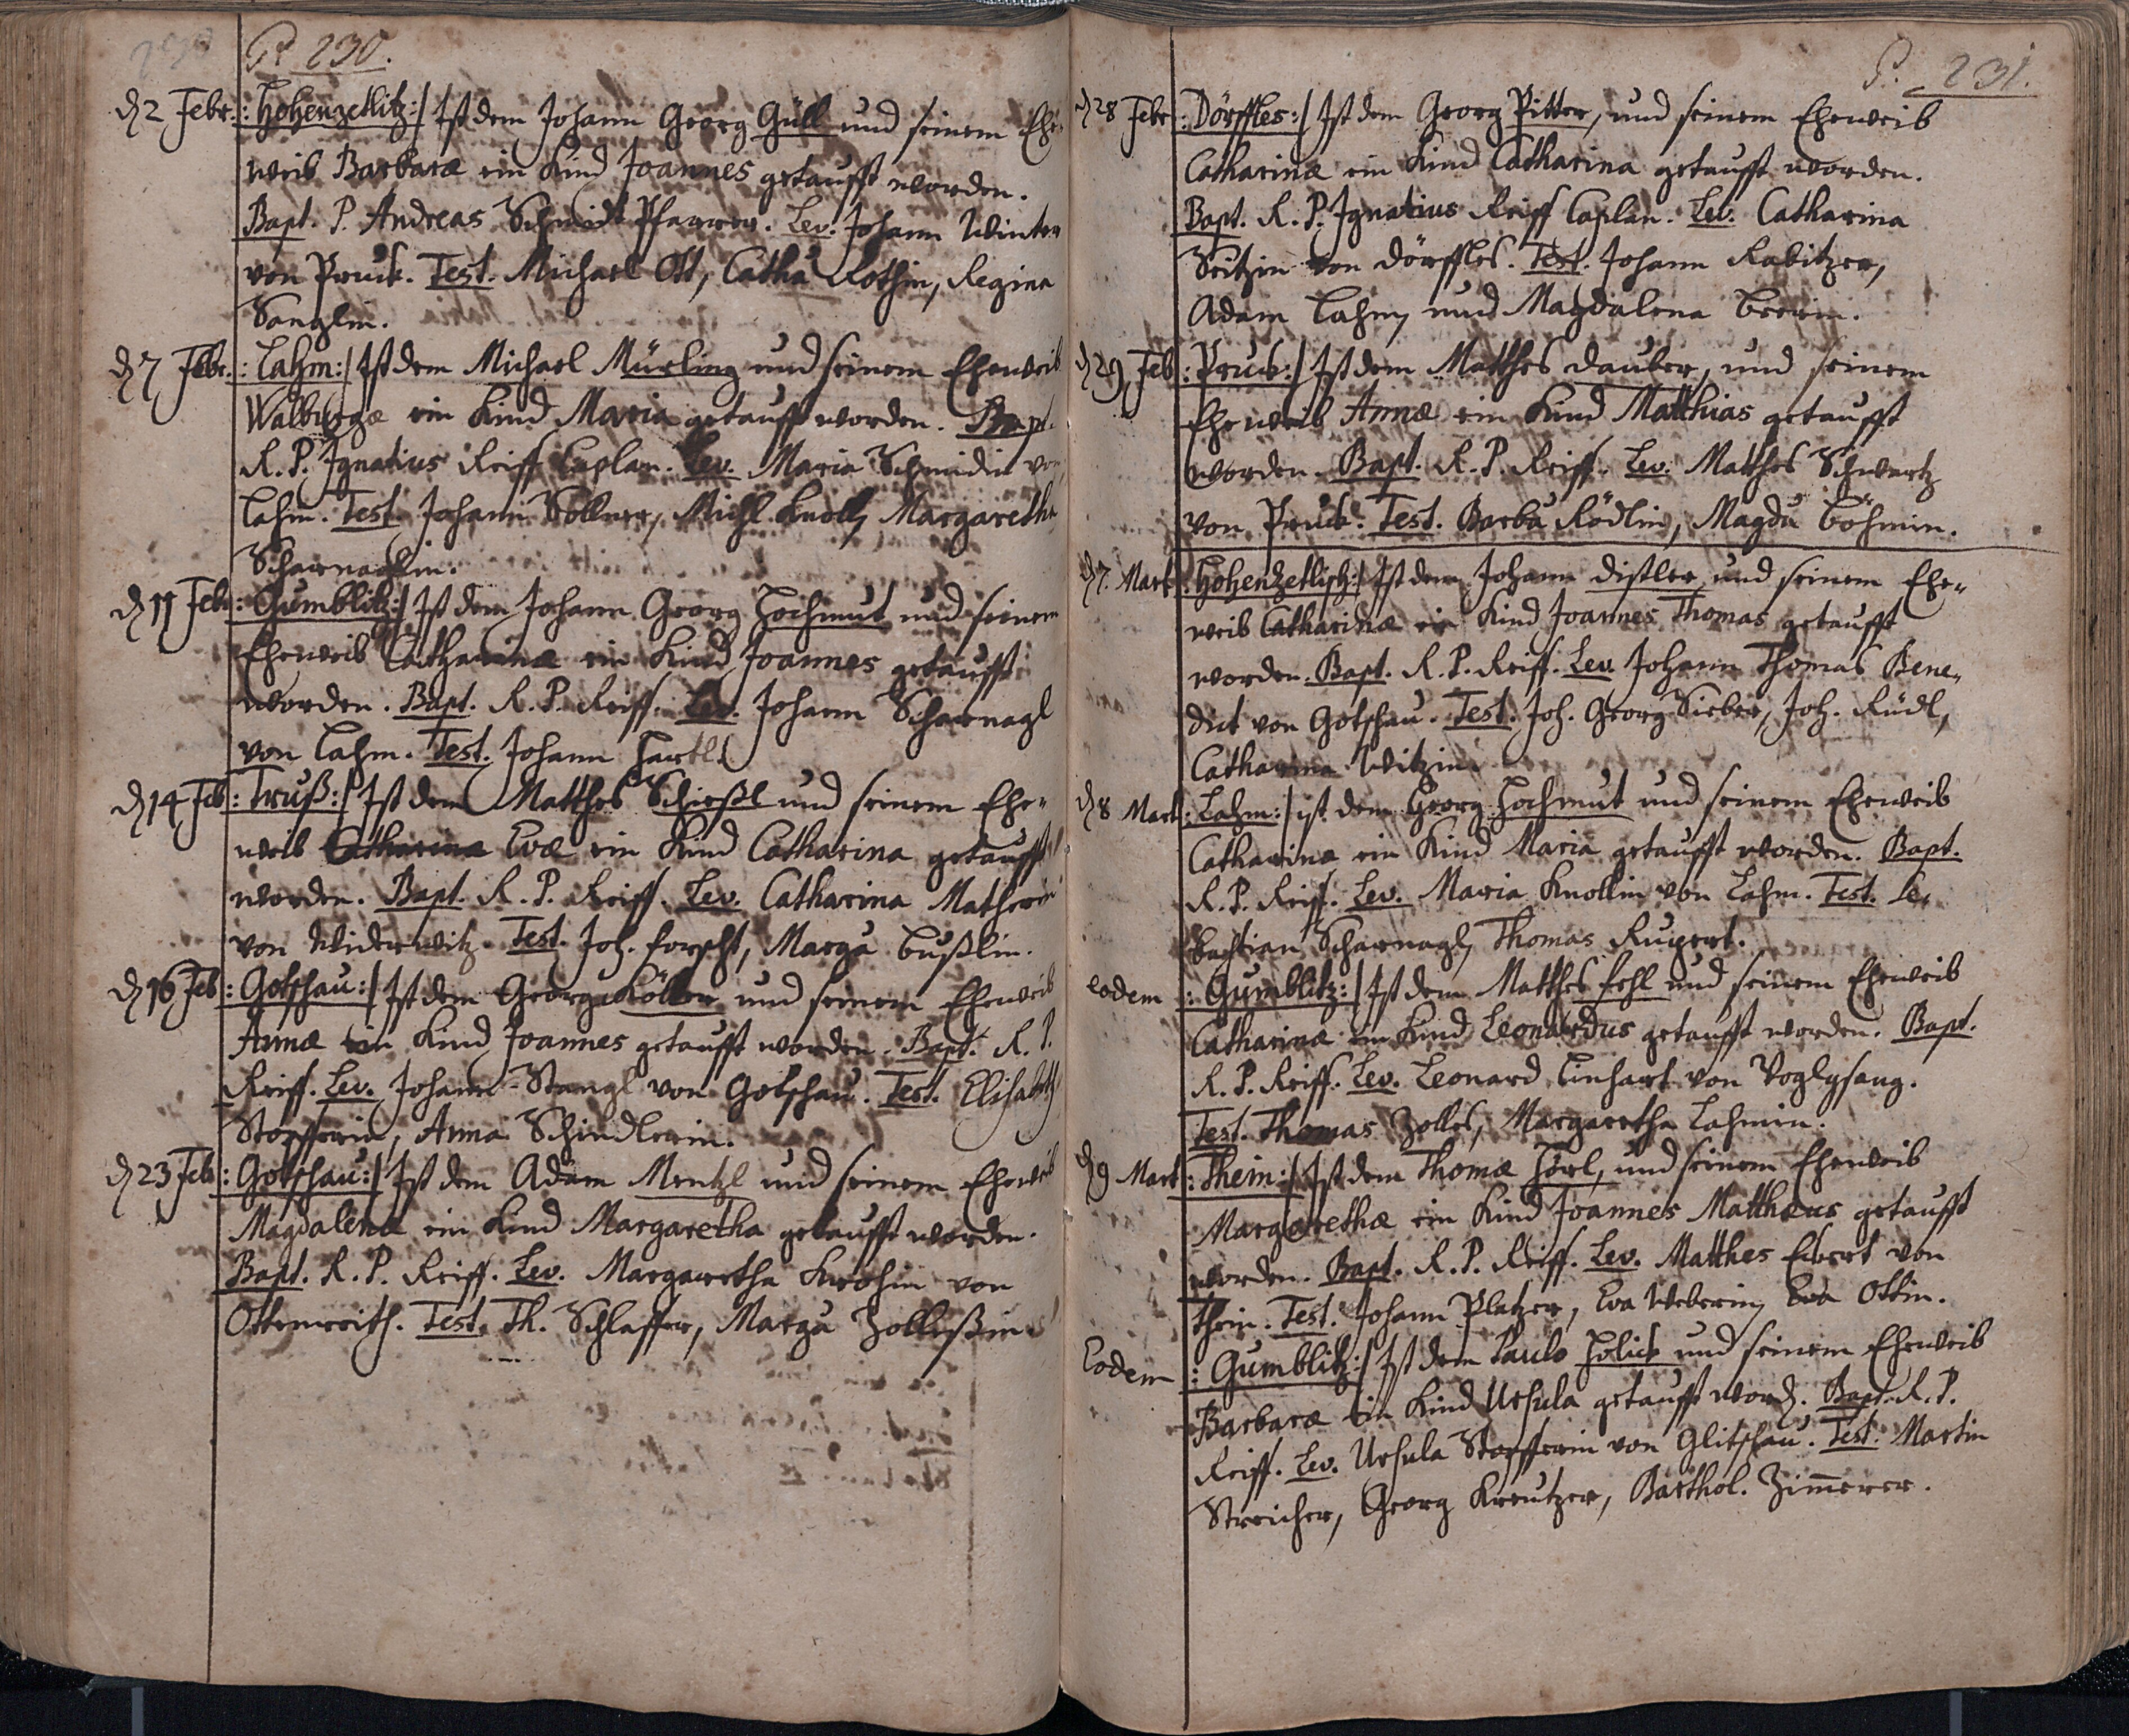 P. 230.
d. 2 Febr. :Hohenzetlitz:/ Ist dem Johann Georg Güll und seinem Ehe-
weib Barbaræ ein Kind Joannes getaufft worden.
Bapt. P. Andreas Schmidt Pfarrer. Lev. Johann Winter
von Pruck. Test. Michael Ott, Catha Rothin, Regina
Sanglin.
d. 7 Febr. :Lahm:/ Ist dem Michael Mürling und seinem Eheweib
Walburgæ ein Kind Maria getaufft worden. Bapt.
R. P. Ignatius Reiff Caplan. Lev. Maria Schmidin von
Lahm. Test. Johann Sollner, Michl Knoll, Margaretha
Scharnaglin.
d. 11 Febr. :Gumblitz:/ Ist dem Johann Georg Hochmut und seinem
Eheweib Catharinæ ein Kind Joannes getaufft
worden. Bapt. R. P. Reiff. Lev. Johann Scharnagl
von Lahm. Test. Johann Hartl.
d. 14 Feb :Truß:/ Ist dem Matthes Schießl und seinem Ehe-
weib Catharinæ Evæ ein Kind Catharina getaufft
worden. Bapt. R. P. Reiff. Lev. Catharina Matherin
von Widerwitz. Test. Joh. Forscht, Marga Bußlin.
d. 16 Feb :Gotschau:/ Ist dem Georg Köller und seinem Eheweib
Annæ ein Kind Joannes getaufft worden. Bapt. R. P.
Reiff. Lev. Johann Stangl von Gotschau. Test. Elisabeth
Stopfferin, Anna Schindlerin.
d. 23 Feb :Gotschau:/ Ist dem Adam Mentzl und seinem Eheweib
Magdalenæ ein Kind Margaretha getaufft worden.
Bapt. R. P. Reiff. Lev. Margaretha Krohin von
Ottenreith. Test. Th. Schlaffer, Marga Zolleßin.
P. 231.
d. 28 Febr :Dörffles:/ Ist dem Georg Pitter, und seinem Eheweib
Catharinæ ein Kind Catharina getaufft worden.
Bapt. R. P. Ignatius Reiff Caplan. Lev. Catharina
Seitzin von Dörffles. Test. Johann Rabitzer,
Adam Lahm, und Magdalena Beerin.
d. 29 Feb :Pruck:/ Ist dem Matthes Dauber, und seinem
Eheweib Annæ ein Kind Matthias getaufft
worden. Bapt. R. P. Reiff. Lev. Matthes Schwartz
von Pruck. Test. Barba Rödlin, Magda Böhmin.
d. 7. Mart :Hohenzetlisch:/ Ist dem Johann Distler und seinem Ehe-
weib Catharinæ ein Kind Joannes Thomas getaufft
worden. Bapt. R. P. Reiff. Lev. Johann Thomas Bene-
dict von Gotschau. Test. Joh. Georg Sieber, Joh. Rüdl,
Catharina Witzin.
d. 8 Mart :Lahm:/ ist dem Georg Hochmut und seinem Eheweib
Catharina ein Kind Maria getaufft worden. Bapt.
R. P. Reiff. Lev. Maria Knollin von Lahm. Test. Se-
bastian Scharnagl, Thomas Rupert.
Eodem :Gumblitz:/ Ist dem Matthes Fehl und seinem Eheweib
Catharinæ ein Kind Leonardus getaufft worden. Bapt.
R. P. Reiff. Lev. Leonard Linhart von Voglgsang.
Test. Thomas Zolles, Margaretha Lahmin.
d. 9 Mart :Thein:/ Ist dem Thomæ Hörl, und seinem Eheweib
Margarethæ ein Kind Joannes Matthæus getaufft
worden. Bapt. R. P. Reiff. Lev. Matthes Eibert von
Thein. Test. Johann Platzer, Eva Weberin, Eva Ottin.
Eodem :Gumblitz:/ Ist dem Paulo Holick und seinem Eheweib
Barbaræ ein Kind Ursula getaufft word. Bapt. R. P.
Reiff. Lev. Ursula Stopfferin von Glitschau. Test. Martin
Streicher, Georg Kreutzer, Barthol. Zimerer.